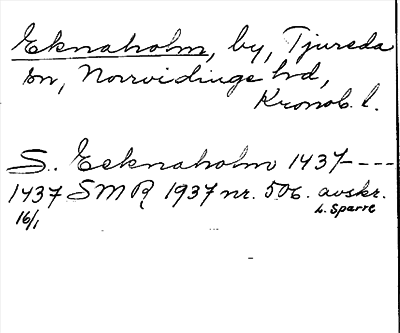 Eknaholm, by, Tjureda
sn, Norrvidinge hd,
Kronob. l.
S. Eeknaholm 1437 - - -
1437 SMR 1937 nr. 506. avskr.
16/1 L. Sparre